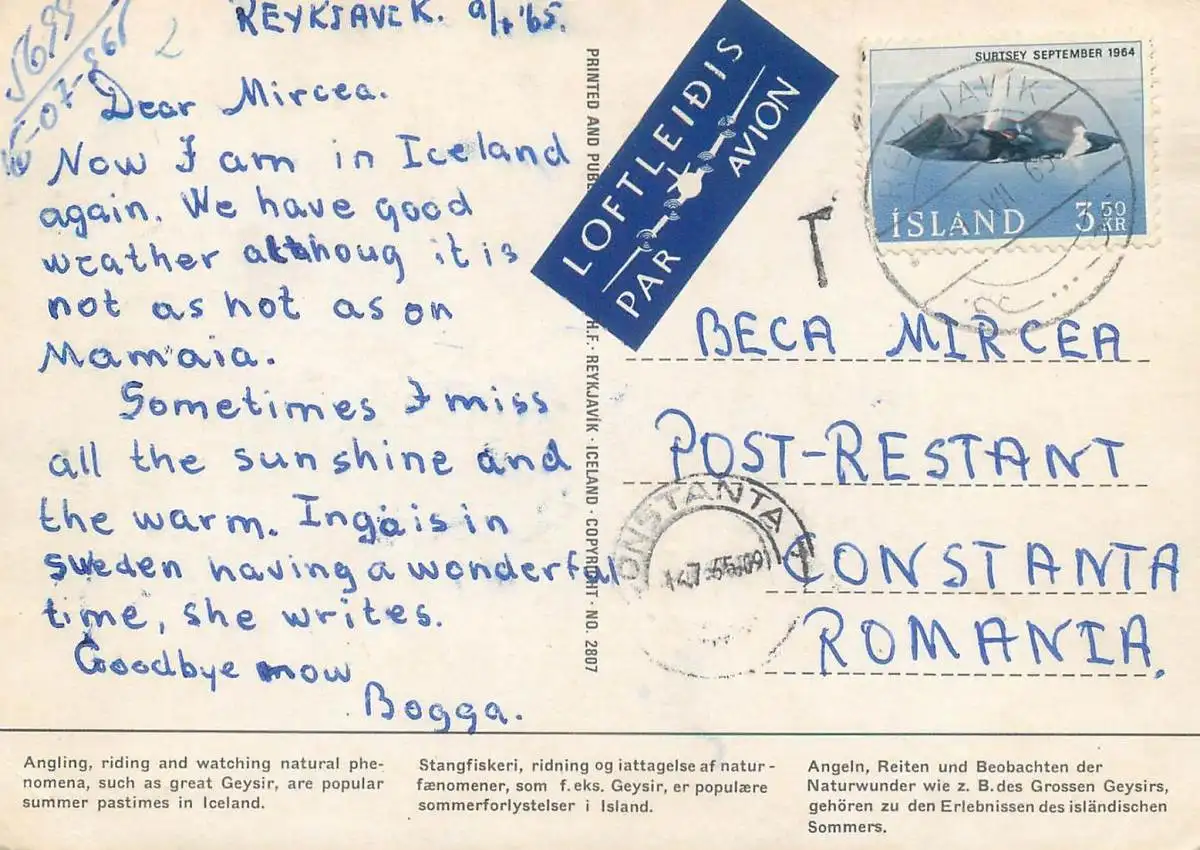 REYKJAVIK. 9/7 '65.
Dear Mircea.
Now I am in Iceland
again. We have good
weather althoug it is
not as hot as on
Mamaia.
Sometimes I miss
all the sunshine and
the warm. Inga is in
Sweden having a wonderful
time, she writes.
Goodbye now
Bogga.
PRINTED AND PUBL
H.F. · REYKJAVÍK · ICELAND · COPYRIGHT · NO. 2807
LOFTLEIÐIS
PAR AVION
SURTSEY SEPTEMBER 1964
ÍSLAND 3 50 KR
REYKJAVÍK
T
BECA MIRCEA
POST-RESTANT
CONSTANTA
ROMANIA.
CONSTANTA
Angling, riding and watching natural phe-
nomena, such as great Geysir, are popular
summer pastimes in Iceland.
Stangfiskeri, ridning og iattagelse af natur-
fænomener, som f. eks. Geysir, er populære
sommerforlystelser i Island.
Angeln, Reiten und Beobachten der
Naturwunder wie z. B. des Grossen Geysirs,
gehören zu den Erlebnissen des isländischen
Sommers.